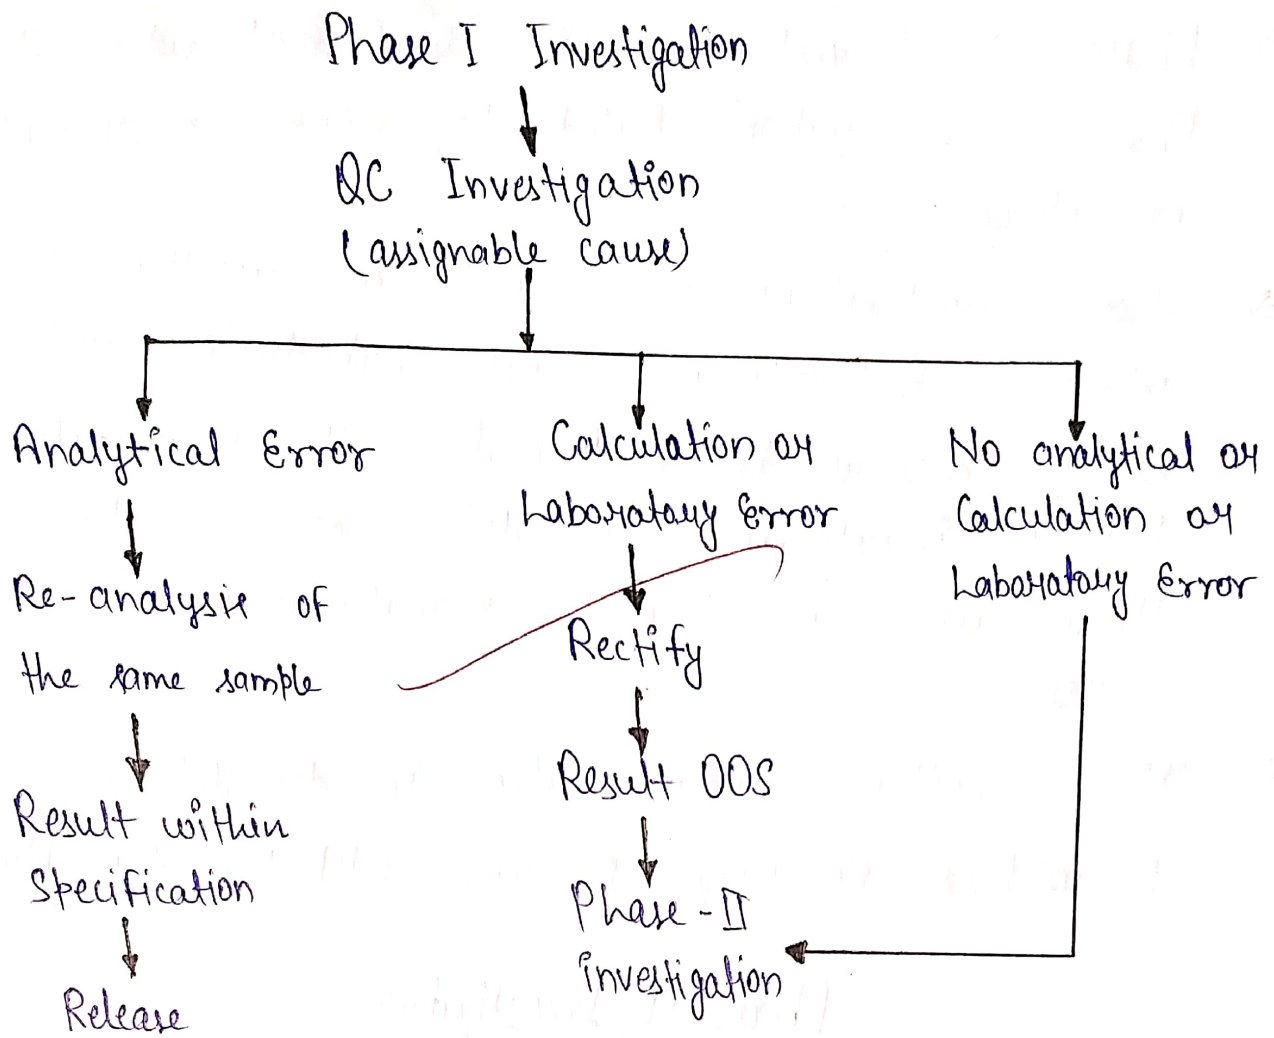 Phase I Investigation
QC Investigation
(assignable cause)
Analytical Error
Re-analysis of
the same sample
Result within
Specification
Release
Calculation or
Laboratory Error
Rectify
Result OOS
Phase-II
investigation
No analytical or
Calculation or
Laboratory Error